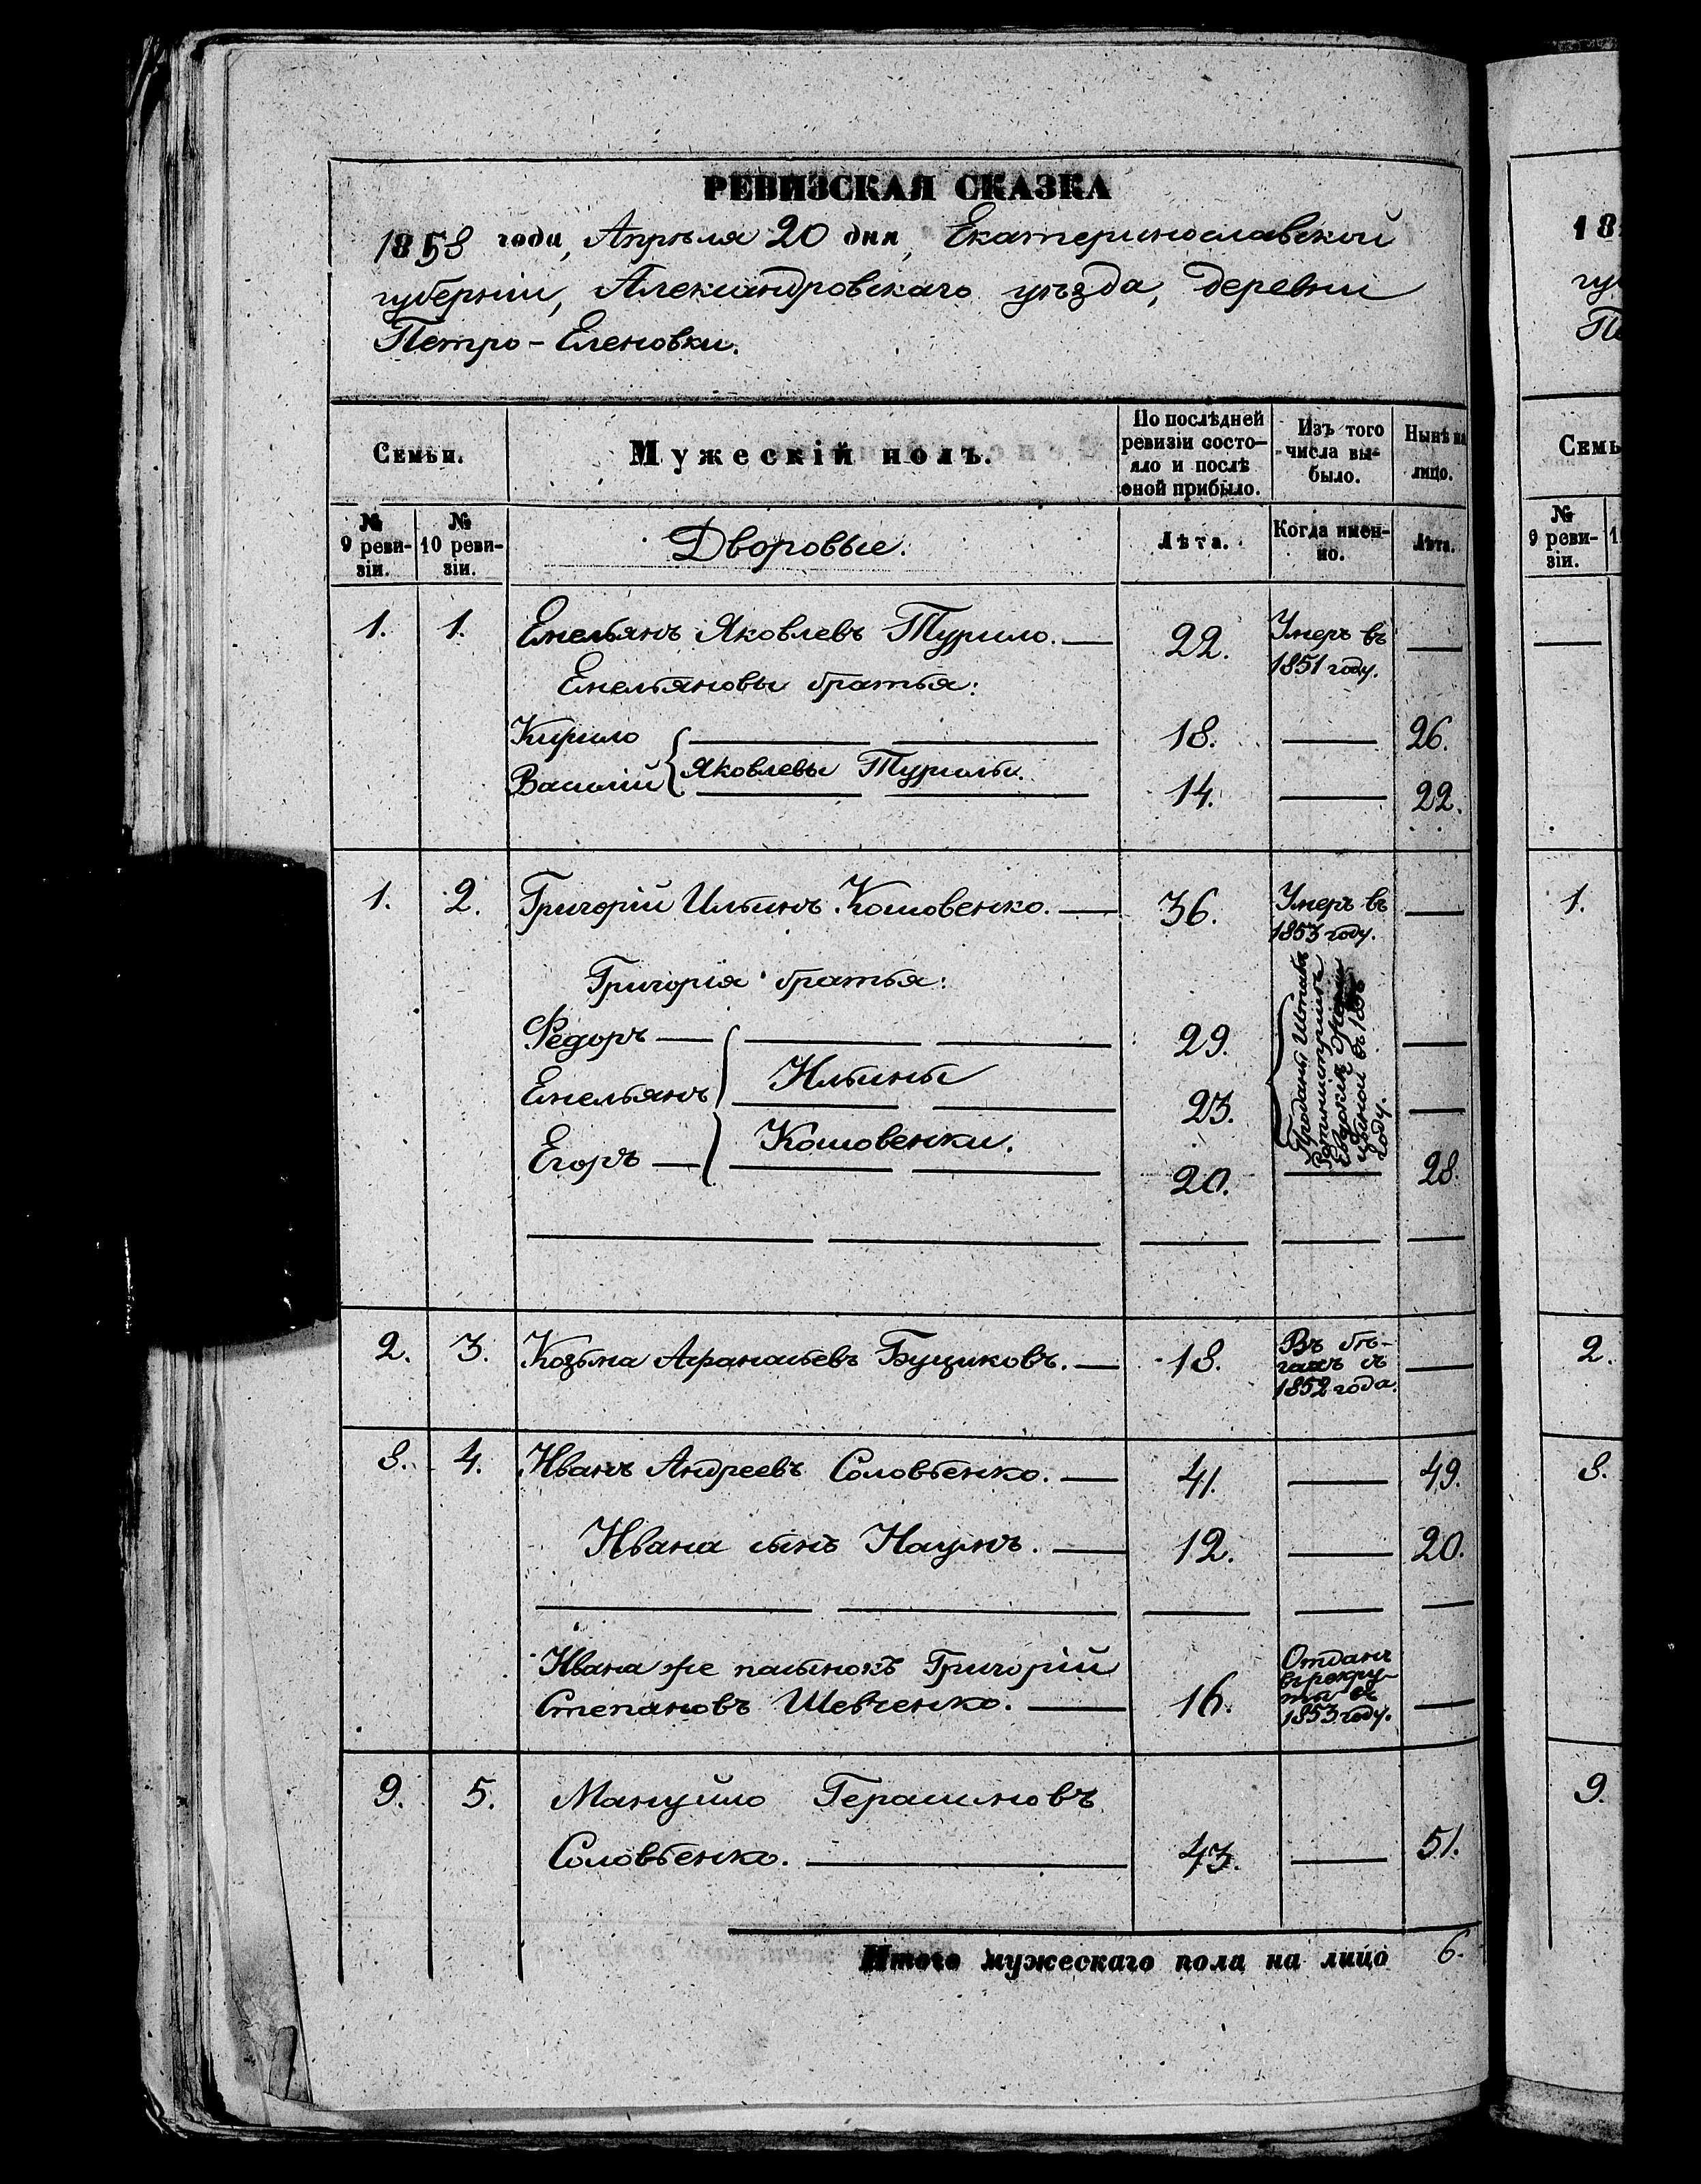 РЕВИЗСКАЯ СКАЗКА
1858 года, Апрѣля 20 дня, Екатеринославской
губерніи, Александровскаго уѣзда, деревни
Петро-Еленовки.
Семьи.
Мужескій полъ.
По послѣдней ревизіи состо-
яло и послѣ оной прибыло.
Изъ того числа вы-
было.
Нынѣ на лицо.
№ 9 реви-
зіи.
№ 10 реви-
зіи.
Дворовые.
Лѣта.
Когда имен-
но.
Лѣта.
1. 1. Емельянъ Яковлевъ Турило. — 22. Умеръ въ —
1851 году.
Емельяновы братья:
Кирило 18. — 26.
Яковлевы Турилы.
Василій 14. — 22.
1. 2. Григорій Ильинъ Кошовенко. — 36. Умеръ въ —
1853 году.
Григорія братья:
Федоръ — 29. —
Ильины
Емельянъ 23. —
Кошовенки.
Егоръ — 20. — 28.
Проданы Штабъ
Ротмистршѣ
Евдокіи
въ 185
году.
2. 3. Козьма Афанасьевъ Бущиковъ. — 18. Въ бѣ- —
гахъ съ
1852 года.
8. 4. Иванъ Андреевъ Соловьенко. — 41. — 49.
Ивана сынъ Наумъ. — 12. — 20.
Ивана же пасынокъ Григорій
Степановъ Шевченко. — 16. Отданъ —
въ рекру-
ты въ
1853 году.
9. 5. Мануйло Герасимовъ
Соловьенко. — 43. — 51.
Итого мужескаго пола на лицо 6.
18
гу
Пе
Семь
№
9 реви-
зіи.
1
1.
2.
8.
9.